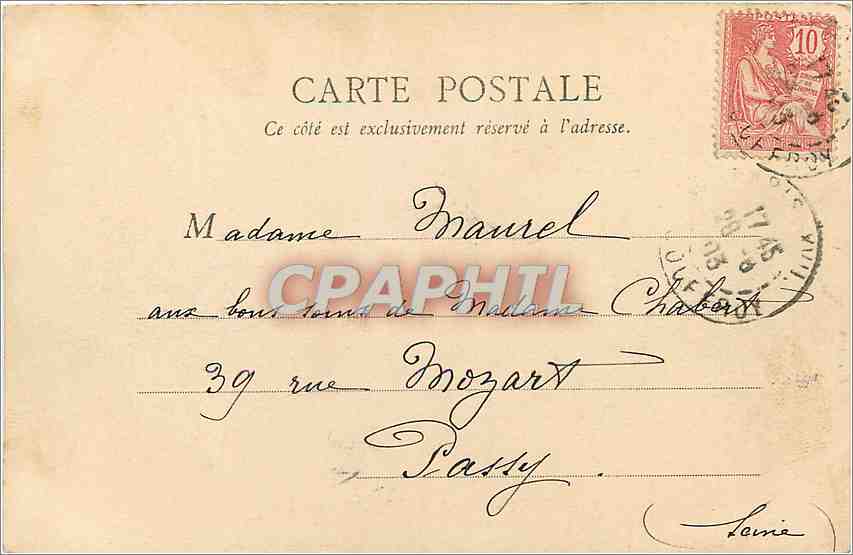 POSTES
10
CARTE POSTALE
Ce côté est exclusivement réservé à l'adresse.
Madame Maurel
17 45
CPAPHIL
aux bons soins de Madame Chabert
39 rue Mozart
Passy.
(Seine)